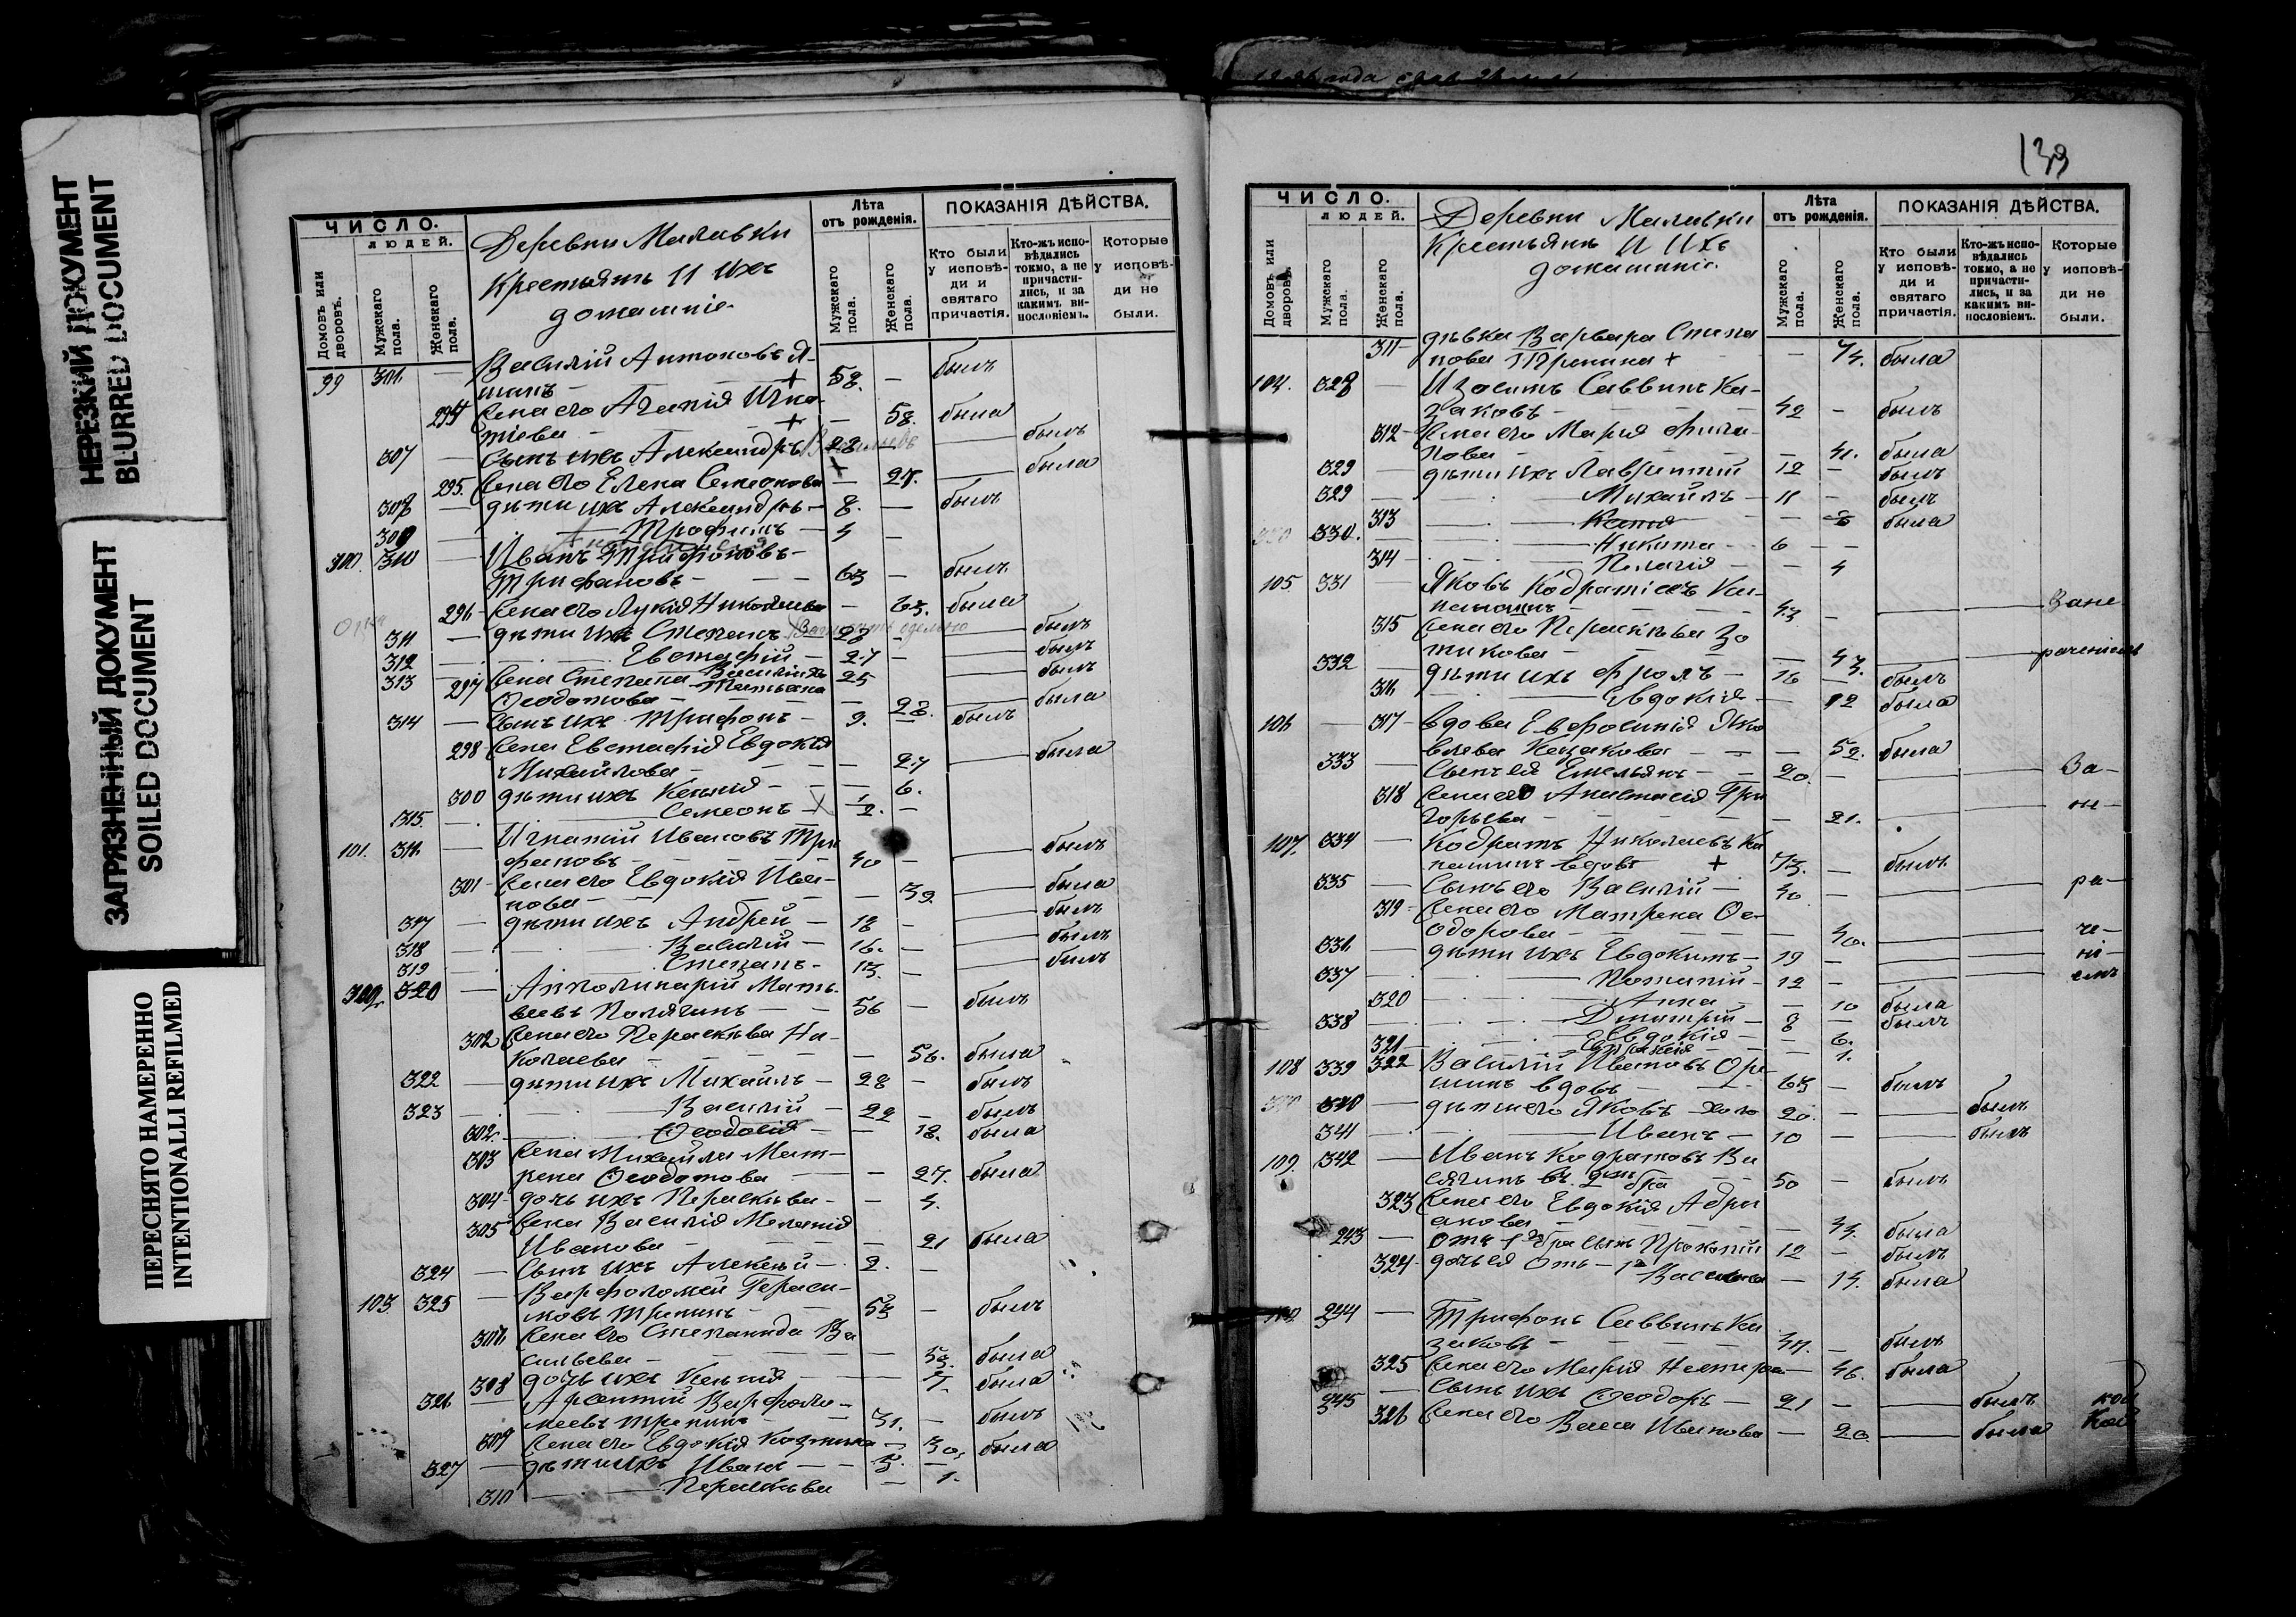 НЕРЕЗКИЙ ДОКУМЕНТ
BLURRED DOCUMENT
ЗАГРЯЗНЕННЫЙ ДОКУМЕНТ
SOILED DOCUMENT
ПЕРЕСНЯТО НАМЕРЕННО
INTENTIONALLI REFILMED
ЧИСЛО.
ЛЮДЕЙ.
Домовъ или дворовъ.
Мужскаго пола.
Женскаго пола.
Деревни Малавки
Крестьянъ И ихъ
домашніе
Лѣта отъ рожденія.
Мужскаго пола.
Женскаго пола.
ПОКАЗАНІЯ ДѢЙСТВА.
Кто были у исповѣди и святаго причастія.
Кто-жъ исповѣдались токмо, а не причастились, и за какимъ винословіемъ.
Которые у исповѣди не были.
99 Василій Антоновъ
58 былъ
294 Жена его Агапія Игна
тіева 58 была
307 Сынъ ихъ Александръ 28 былъ
295 Жена его Елена Семенова была
308 дѣти ихъ Александръ 8 былъ
309 Трофимъ 4
310 Иванъ Трифоновъ
Трифановъ 63 былъ
296 Жена его Лукія Николаева 63 была
311 дѣти ихъ Степанъ 28 былъ
312 Евстафій 27 былъ
313 25 былъ
297 Жена Степана Татьяна
Ѳеодотова 28 была
314 Сынъ ихъ Трифонъ 9 былъ
298 Жена Евстафія Евдокія
Михайлова 27 была
300 дѣти ихъ Ксенія 6
315 Семеонъ
101 Игнатій Ивановъ Три
фановъ 40 былъ
301 Жена его Евдокія Ива-
нова 39 была
317 дѣти ихъ Андрей 18 былъ
318 Василій 16 былъ
319 Степанъ 13 былъ
320 Апполинарій Мать-
веевъ 56 былъ
302 Жена его Параскѣва Ни-
колаева 56 была
322 дѣти ихъ Михаилъ 28 былъ
323 Василій 22 былъ
302 Ѳеодосія 18 была
303 Жена Михаила Мат-
рена Ѳеодотова 27 была
304 дочь ихъ Параскѣва 4
305 Жена Василія Меланія
Иванова 21 была
324 Сынъ ихъ Алексѣй 2
103 325 Варфоломей Гераси-
мовъ 53 былъ
Жена его Степанида Ва
сильева была
308 дочь ихъ Ксенія была
326 Арсентій Варфоло-
меевъ 31 былъ
309 Жена его Евдокія Козмина 30 была
327 дѣти ихъ Иванъ 3
310 Параскѣва 1
139
ЧИСЛО.
ЛЮДЕЙ.
Домовъ или дворовъ.
Мужскаго пола.
Женскаго пола.
Деревни Малавки
Крестьянъ И Ихъ
домашніе
Лѣта отъ рожденія.
Мужскаго пола.
Женскаго пола.
ПОКАЗАНІЯ ДѢЙСТВА.
Кто были у исповѣди и святаго причастія.
Кто-жъ исповѣдались токмо, а не причастились, и за какимъ винословіемъ.
Которые у исповѣди не были.
311 дѣвка Варвара Степа
нова была
104 328 Изосимъ Саввинъ Ка-
заковъ 42 былъ
312 Жена его Марія Фили-
пова 41 была
329 дѣти ихъ Лаврентій 12 былъ
329 Михаилъ 11 былъ
313 была
330 Никита 6
314 Пелагія 4
105 331 Яковъ Кодратіевъ Ка-
43 Зане
315 Жена его Параскѣва Зо
тикова 43 раченіемъ
332 дѣти ихъ Фролъ 16 былъ
Евдокія 12 была
106 317 вдова Евфросинія Яко
влева Казакова 52 была
333 Сынъ ея Емельянъ 20 За-
318 Жена его Анастасія Гри
горьева 21 не-
107 334 Кодратъ Николаевъ Ка
вдовъ 73 былъ
335 Сынъ его Василій 40 ра-
319 Жена его Матрена Ѳе-
одорова 40 че-
336 дѣти ихъ Евдокимъ 19 ні-
337 12 емъ
320 Анна 10 была
338 Дмитрій 8 былъ
321 Евдокія 6
322 1
108 339 Василій Ивановъ
вдовъ 63 былъ
340 дѣти его Яковъ 20 былъ
341 Иванъ 10 былъ
109 342 Иванъ Кодратовъ Ва
50 былъ
323 Жена его Евдокія Адри
анова была
243 Сынъ Прокопій 12 былъ
324 дочь ея 14 была
244 Трифонъ Саввинъ Ка
заковъ былъ
325 Жена его Марія Нестерова 46 была
345 Сынъ ихъ Ѳеодоръ 21 былъ
326 Жена его Васса Иванова 20 была